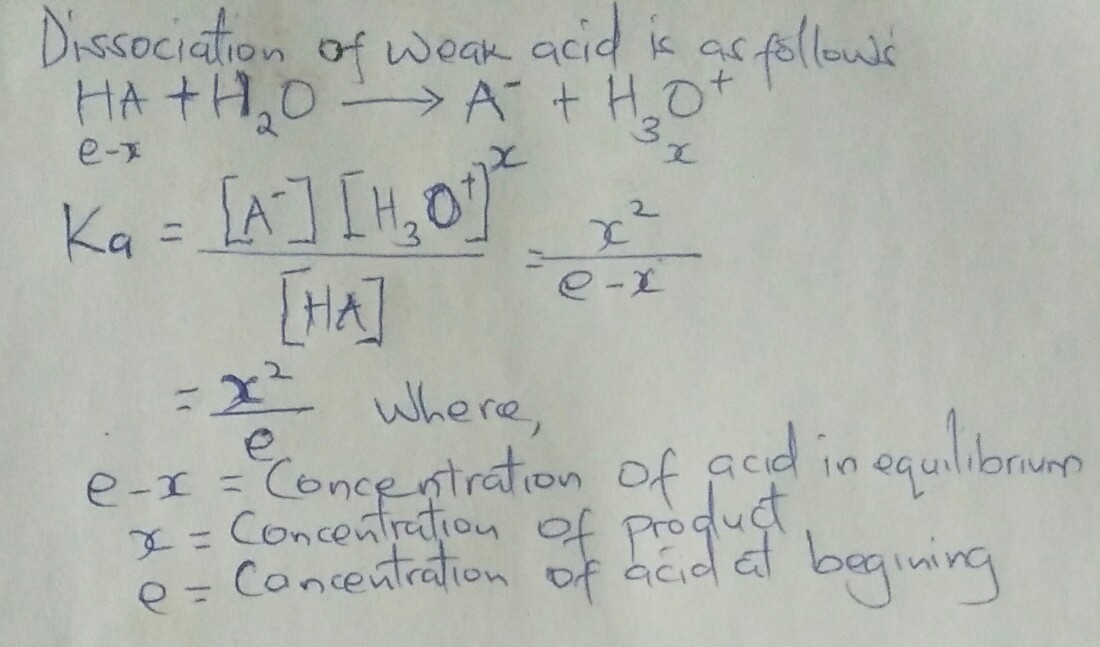 Dissociation of weak acid is as follows
HA + H₂O ⟶ A⁻ + H₃O⁺
e-x x
Ka = [A⁻] [H₃O⁺]ˣ / [HA] = x² / e-x
= x² / e where,
e-x = Concentration of acid in equilibrium
x = Concentration of product
e = Concentration of acid at begining